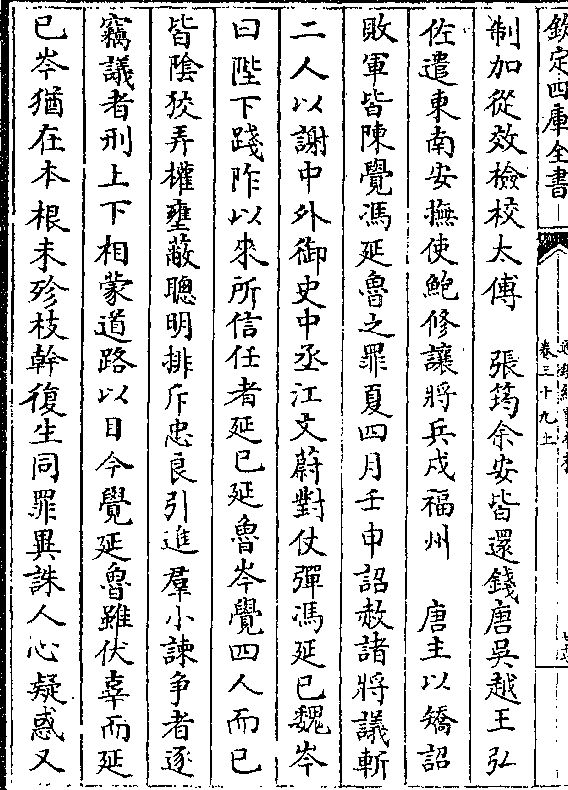 欽定四庫全書
卷三十九上
制加從效檢校太傅　張筠余安皆還錢唐吳越王弘
佐遣東南安撫使鮑修讓將兵戍福州　唐主以矯詔
敗軍皆陳覺馮延魯之罪夏四月壬申詔赦諸將議斬
二人以謝中外御史中丞江文蔚對仗彈馮延已魏岑
曰陛下踐阼以來所信任者延已延魯岑覺四人而已
皆陰狡弄權壅蔽聰明排斥忠良引進羣小諫爭者逐
竊議者刑上下相蒙道路以目今覺延魯雖伏辜而延
已岑猶在本根未殄枝幹復生同罪異誅人心疑惑又